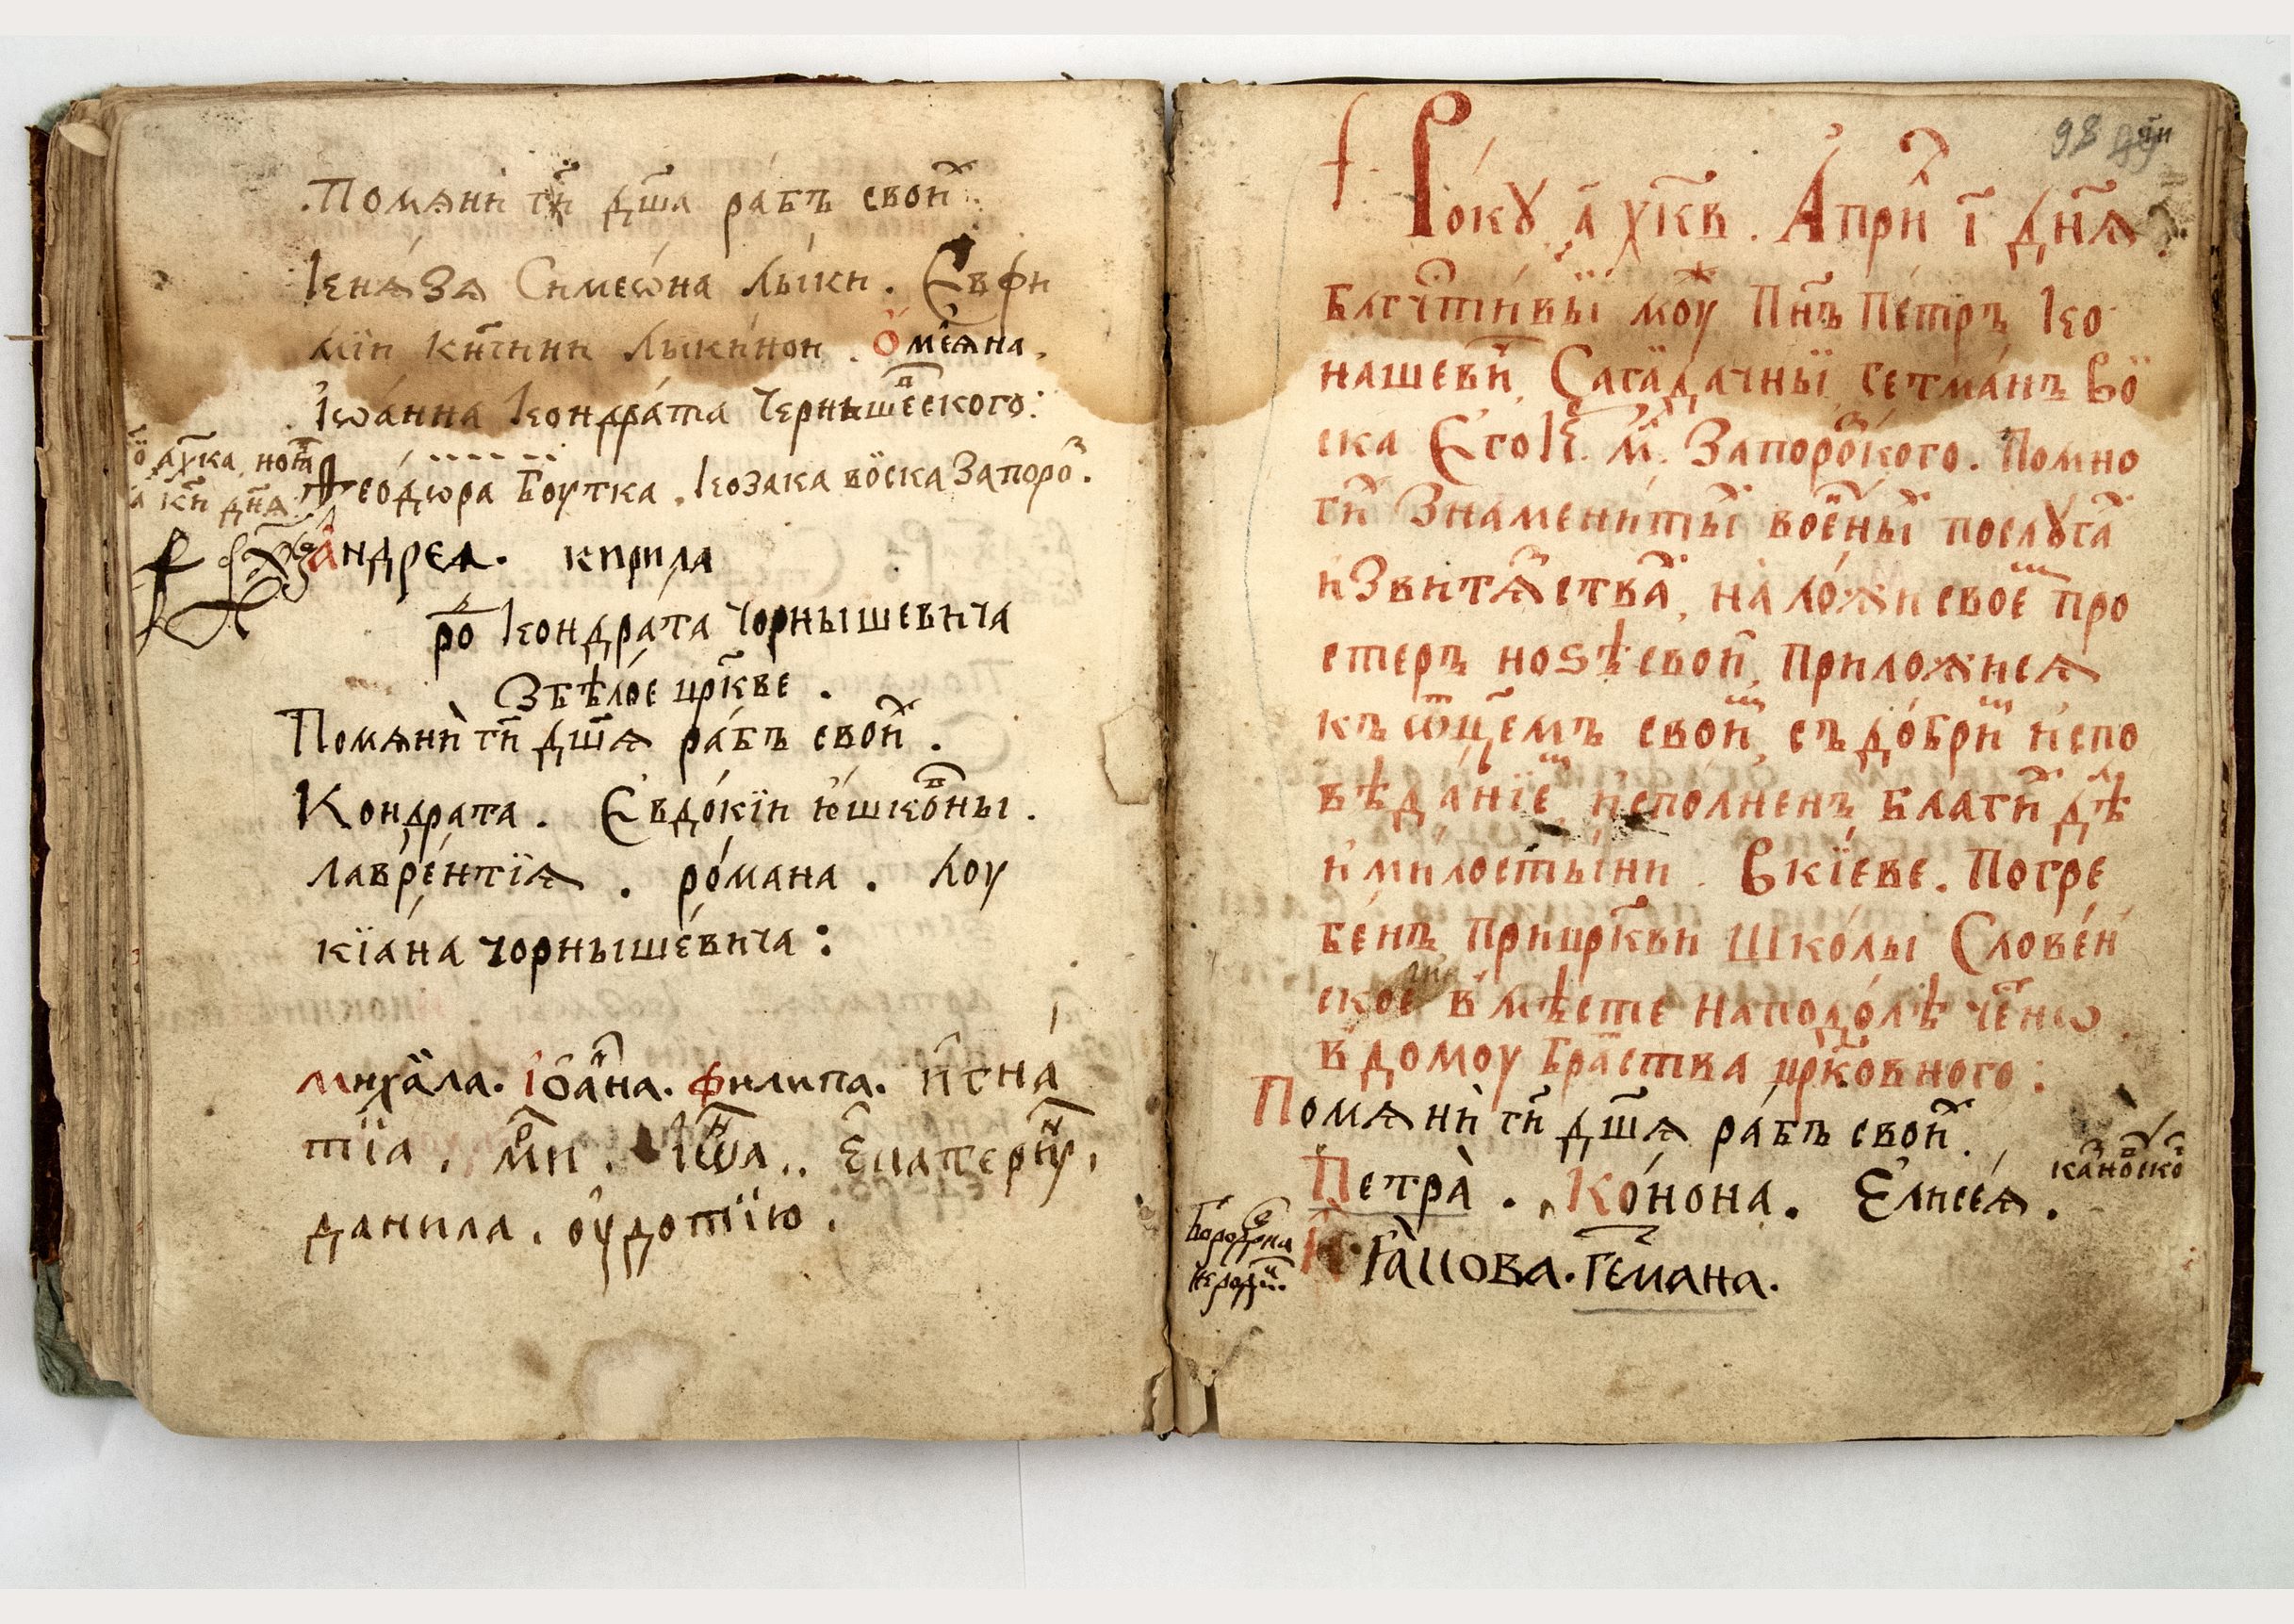 Помѧни гⷭ҇и дш҃а рабъ свои
Кнѧзѧ Симеѡна Лыки. Евфи
мїи Лыкиной. Ѻмеѧна.
Іѡанна Кондрата Чернышевского:
Ѳеодѡра Боутка. Козака воска Запоро.
Андреа. кирила
ро Кондрата Чорнышевича
Збѣлое црк҃ве.
Помѧни гⷭ҇и дш҃ѧ рабъ свои.
Кондрата. Евдокїи юшковны.
лаврентїѧ. романа. лоу
кїана чорнышевича:
михаила. іоана. филипа. игна
тїа. Екатерину,
данила. оудотїю.
98
Рокꙋ ҂а҃ хк҃в. Априⷧ і҃ дн҃ѧ
Блгⷭ҇тивыи моу Пн҃ъ Петръ Ко
нашеви, Сагадачныи гетманъ Во
ска Его К. М. Запорозкого. По мно
ги знамениты военны послꙋга
и звитѧства, на ложи своє про
стеръ ноѕѣ свои, приложисѧ
къ ѿцемъ свои, съ добри испо
вѣданїе, исполненъ благи дѣ
и милостыни. в кїеве. Погре
бенъ при црк҃ви Школы Словен
ское в мѣсте на подолѣ чеⷭно
в домоу Братства црк҃овного:
Помѧни гⷭ҇и дш҃ѧ рабъ свои.
Петра. Конона. Елисеѧ.
Іакова. Гемана.